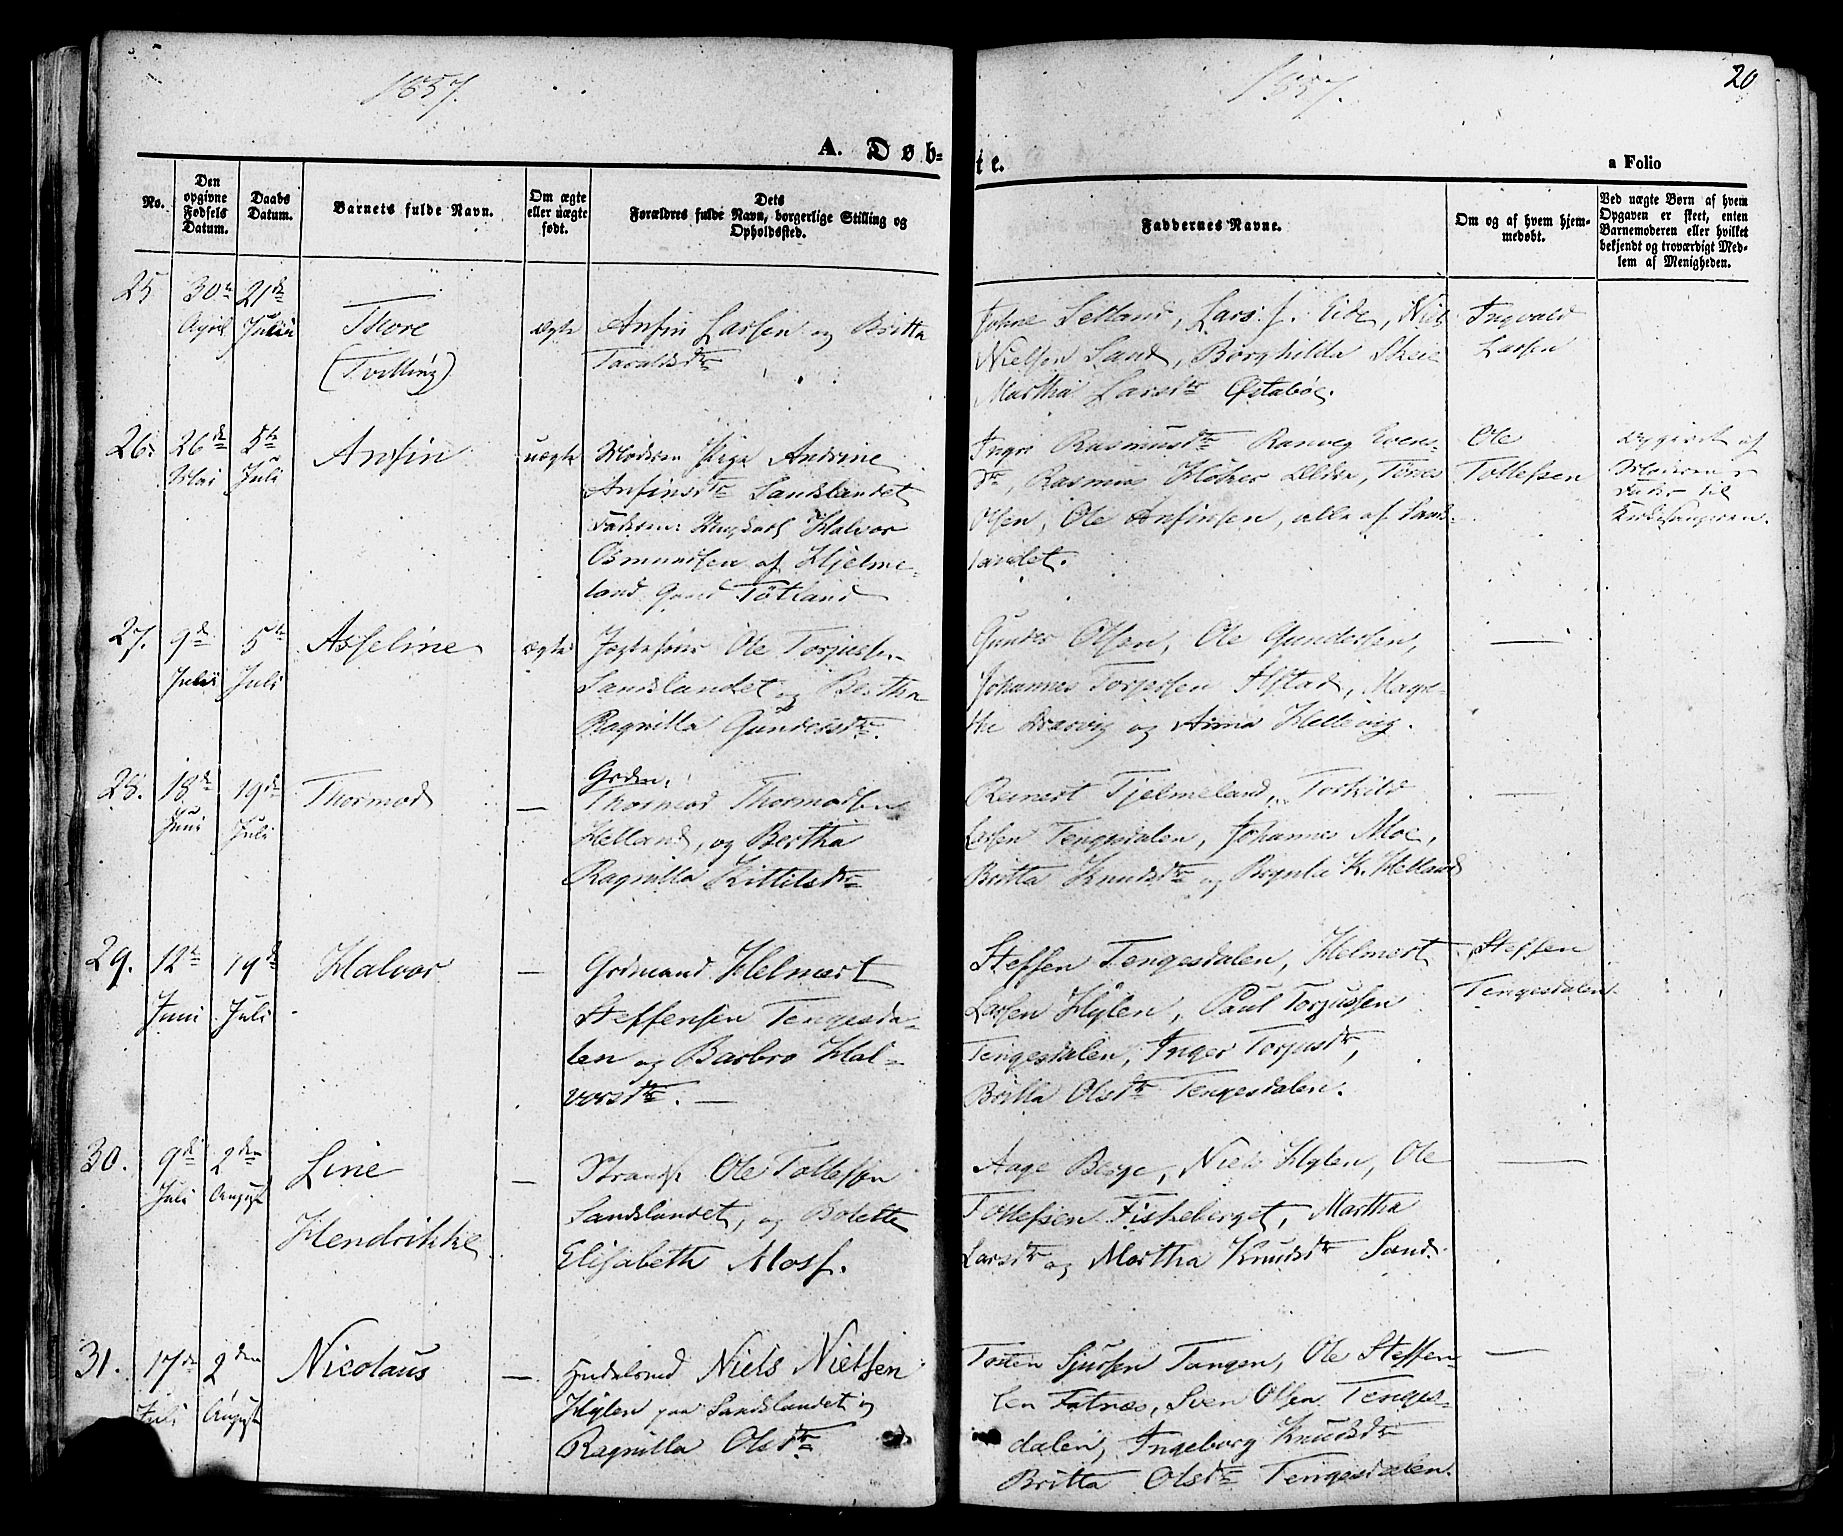 1857.
1857.
20
A. Døb-
te.
a Folio
No.
Den opgivne Fødsels Datum.
Daabs Datum.
Barnets fulde Navn.
Om ægte eller uægte født.
Dets
Forældres fulde Navn, borgerlige Stilling og
Opholdssted.
Faddernes Navne.
Om og af hvem hjem-
medøbt.
Ved uægte Børn af hvem
Opgaven er skeet, enten
Barnemoderen eller hvilket
bekjendt og troværdigt Med-
lem af Menigheden.
25 30te April 21de Julii
Thore
(Tvilling)
ægte
Anfin Larsen og Britta
Taraldsdtr
Johne Setland, Lars J. Eide, Niels
Nielsen Sand, Borghilda Skeie
Martha Larsdtr Østabøe.
Ingvald
Larsen
26. 26de Mai 5te Juli
Anfin
uægte
Moderen Pige Andrine
Anfinsdtr Sandslandet
Faderen: Ungkarl Halvor
Osmundsen af Hjelme-
land Gaard Tøtland
Inger Rasmusdtr Ranveg Ivers-
dtr, Rasmus Ældre, Tønes
Olsen, Ole Anfinsen, alle af Sands-
landet.
Ole
Tollefsen
Opgivet af
Moderens
Fader til
Kirkesangeren.
27. 9de Julii 5te Juli
Asseline
ægte
Jægtefører Ole Torjusen
Sandslandet og Bertha
Ragnilla Gundersdtr.
Gunder Olsen, Ole Gundersen,
Johannes Torjersen Ilstad, Magre-
the Drarvig og Anna Hellevig.
28. 18de Juni 19de Juli
Thormod
Grdm.
Thormod Thormodsen
Helland, og Bertha
Ragnilla Kittilsdtr
Reinert Tjelmeland, Torkild
Larsen Tengesdalen, Johannes Moe,
Britta Knudsdtr og Brynla K. Helland
29. 12te Juni 19de Juli
Halvor
Grdmand Helmert
Steffensen Tengesda-
len og Barbro Hal-
vorsdtr.
Steffen Tengesdalen, Helmert
Larsen Hylen, Paul Torjussen
Tengesdalen, Inger Torjusdtr,
Britta Olsdtr Tengesdalen.
Steffen
Tengesdalen
30. 9de Juli 2den August
Line
Hendrikke
Strands. Ole Tollefsen
Sandslandet, og Bolette
Elisabeth Mosf.
Aage Berge, Niels Hylen, Ole
Tollefsen Fiskeberget, Martha
Larsdtr og Martha Knudsdtr Sand.
31. 17de Juli 2den August
Nicolaus
Niels Nielsen
Hylen paa Sandslandet og
Ragnilla Olsdtr
Tosten Sjursen Tangen, Ole Steffen-
sen Fatnæs, Sven Olsen Tenges-
dalen, Ingeborg Knudsdtr
Britta Olsdtr Tengesdalen.